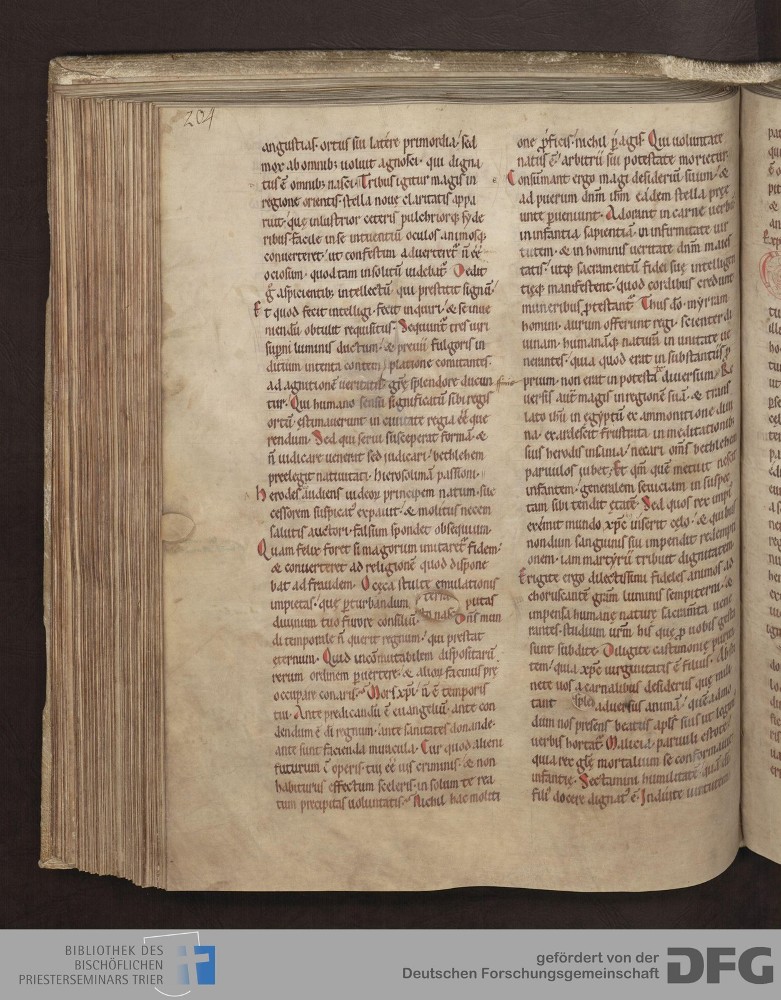 204
angustias ortus sui latere primordia. sed
mox ab omnib; uoluit agnosci. qui digna
tus ē omnib; nasci. Tribus igitur magis in
regione orientis stella noue claritatis appa
ruit. quę inlustrior ceteris pulchriorq; syde
ribus. facile in se intuentiū oculos animosq;
conuerteret. ut confestim aduerteret' n̄ eē
ociosum. quod tam insolitū uidebat'. Dedit
g̊ aspicientib; intellectū. qui prestitit signū.
Et quod fecit intelligi. fecit inquiri. & se inue
niendū obtulit requisitus. Sequunt' tres uiri
sup̄ni luminis ductum. & preuii fulgoris in
dicium intenta contem platione comitantes.
ad agnitionē ueritatis grę splendore ducun
tur. Qui humano sensu significatū sibi regis
ortū. estimauerunt in ciuitate regia eē que
rendum. Sed qui serui susceperat formā. &
n̄ iudicare uenerat sed iudicari. bethleem
preelegit natiuitati. hierosolimā passioni.
Herodes audiens iudeoꝝ principem natum. suc
cessorem suspicat' expauit. & molitus necem
salutis auctori. falsum spondet obsequium.
Quam felix foret si magorum imitaret' fidem.
& conuerteret ad religionē quod dispone
bat ad fraudem. O cęca stulte emulationis
impietas. quę ꝑturbandum putas
diuinum tuo furore consiliū. Dn̄s mun
di temporale n̄ querit regnum. qui prestat
eternum. Quid incōmutabilem dispositarū
rerum ordinem ꝑuertere. & alioꝝ facinus pre
occupare conaris. Mors xp̄i n̄ ē temporis
tui. Ante predicandū ē euangeliū. ante con
dendum ē di regnum. ante sanitates donande.
ante sunt facienda miracula. Cur quod alieni
futurum ē operis. tui eē uis criminis. & non
habiturus effectum sceleris. in solum te rea
tum precipitas uoluntatis. Nichil hac moliti
one ꝓficis. nichil ꝑagis. Qui uoluntate
natus ē. arbitrii sui potestate morietur.
Consūmant ergo magi desideriū suum. &
ad puerum dnm ihm eadem stella preę
unte ꝑueniunt. Adorant in carne uerbū
in infantia sapientiā. in infirmitate uir
tutem. & in hominis ueritate dnm maies
tatis. utq; sacramentū fidei suę intelligen
tięq; manifestent. quod cordibus credunt
muneribus ꝓtestant'. Thus dō. myrram
homini. aurum offerunt regi. scienter di
uinam. humanāq; naturā in unitate ue
nerantes. quia quod erat in substantiis ꝓ
prium. non erat in potestate diuersum. Re
uersis aut̄ magis in regionē suā. & trans
lato ihū in egyptū ex ammonitione diui
na. exardescit frustrata in meditationib;
suis herodis insania. necari om̄s bethleem
paruulos iubet. Et qm̄ quē metuit nescit
infantem. generalem seuiciam in suspec
tam sibi tendit ętatē. Sed quos rex impius
eximit mundo. xp̄c inserit cęlo. & quibus
nondum sanguinis sui impendit redempti
onem. iam martyrii tribuit dignitatem.
Erigite ergo dilectissimi fideles animos ad
choruscantē grām luminis sempiterni. &
impensa humanę naturę sacram̄ta uene
rantes. studium urm̄. his quę ꝓ uobis gesta
sunt subdite. Diligite castimonię purita
tem. quia xp̄c uirginitatis ē filius. Absti
nete uos a carnalibus desideriis quę mili
tant aduersus animā. quēadmo
dum nos presens beatus apłs suis ut legim'
uerbis hortat'. Malicia. paruuli estote
quia rex glę mortalium se conformauit
infantię. Sectamini humilitatē quā di
filī docere dignat' ē. Induite uirtutem
BIBLIOTHEK DES
BISCHÖFLICHEN
PRIESTERSEMINARS TRIER
gefördert von der
Deutschen Forschungsgemeinschaft
DFG